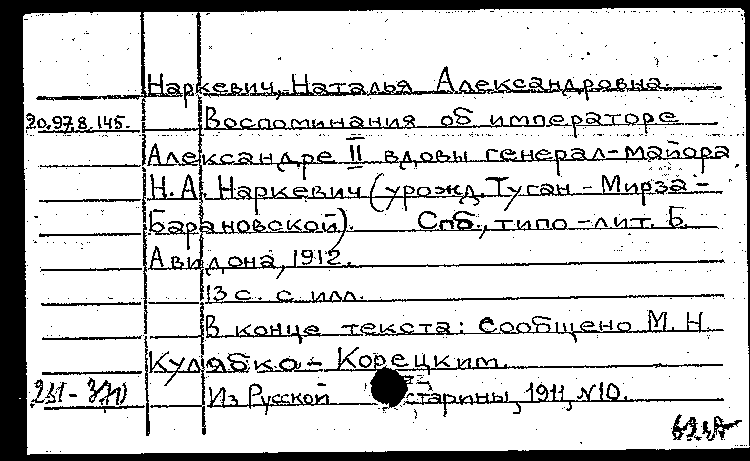 Наркевич, Наталья Александровна.
20.978.145. Воспоминания об императоре
Александре II вдовы генерал-майора
Н.А. Наркевич (урожд. Туган-Мирза-
Барановской). Спб., типо-лит. Б.
Авидона, 1912.
13 с. с илл.
В конце текста: Сообщено М.Н.
Кулябко-Корецким.
Из Русской старины, 1911, №10.